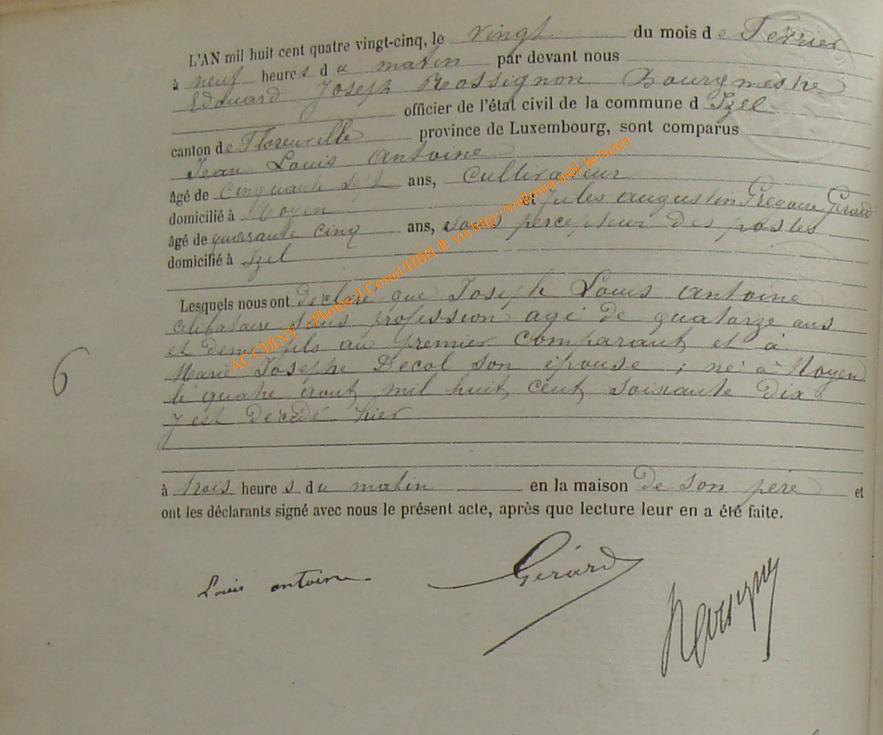 L'AN mil huit cent quatre vingt-cinq, le vingt du mois de Fevrier
à neuf heures du matin par devant nous
Edouard Joseph Rossignon Bourgmestre
officier de l'état civil de la commune d Izel
canton de Florenville province de Luxembourg, sont comparus
Jean Louis Antoine
âgé de cinquante sept ans, cultivateur
domicilié à Moyen et Jules Augustin Grégoire Gérard
âgé de quarante cinq ans, sous percepteur des postes
domicilié à Izel
Lesquels nous ont déclaré que Joseph Louis Antoine
célibataire sans profession agé de quatorze ans
et demi fils au premier comparant et à
Marie Josephe Decol son épouse ; né à Moyen
le quatre aout mil huit cent soixante dix
y est décédé hier
6
à trois heures du matin en la maison de son père et
ont les déclarants signé avec nous le présent acte, après que lecture leur en a été faite.
Louis antoine Gérard